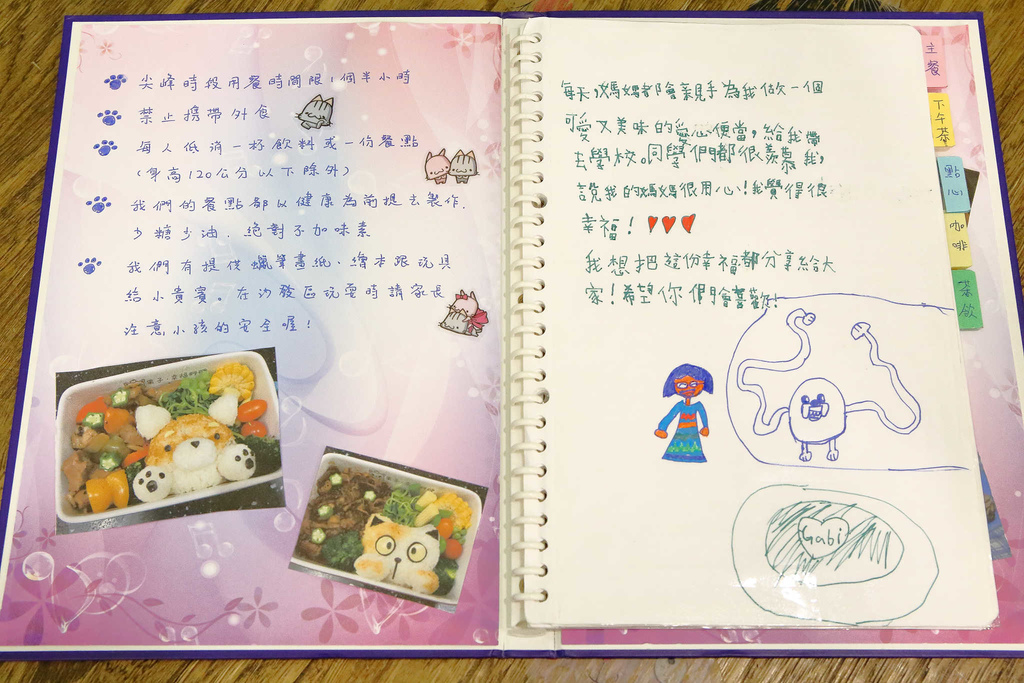 尖峰時段用餐時間限1個半小時
禁止攜帶外食
每人低消一杯飲料或一份餐點
(身高120公分以下除外)
我們的餐點都以健康為前提去製作.
少糖少油.絕對不加味素
我們有提供蠟筆畫紙、繪本跟玩具
給小貴賓。在沙發區玩耍時請家長
注意小孩的安全喔!
每天,媽媽都會親手為我做一個
可愛又美味的愛心便當,給我帶
去學校。同學們都很羨慕我,
說我的媽媽很用心!我覺得很
幸福!
我想把這份幸福都分享給大
家!希望你們會喜歡!
Gabi
主餐
下午茶
點心
咖啡
茶飲